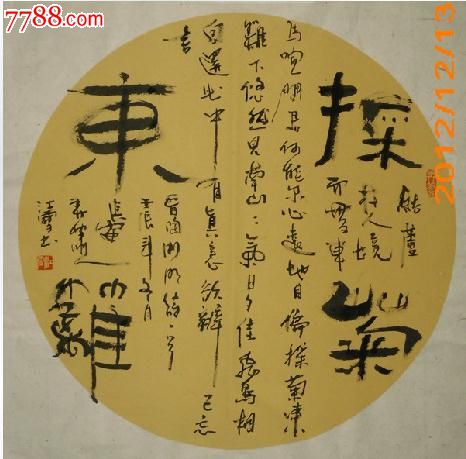 7788.com
2012/12/13
採菊
結廬
在人境
而無車
馬喧問君何能尔心遠地自偏採菊東
籬下悠然見南山々氣日夕佳飛鳥相
與還此中有真意欲辨已忘
言
晉陶渊明詩一首
壬辰年冬月
東籬